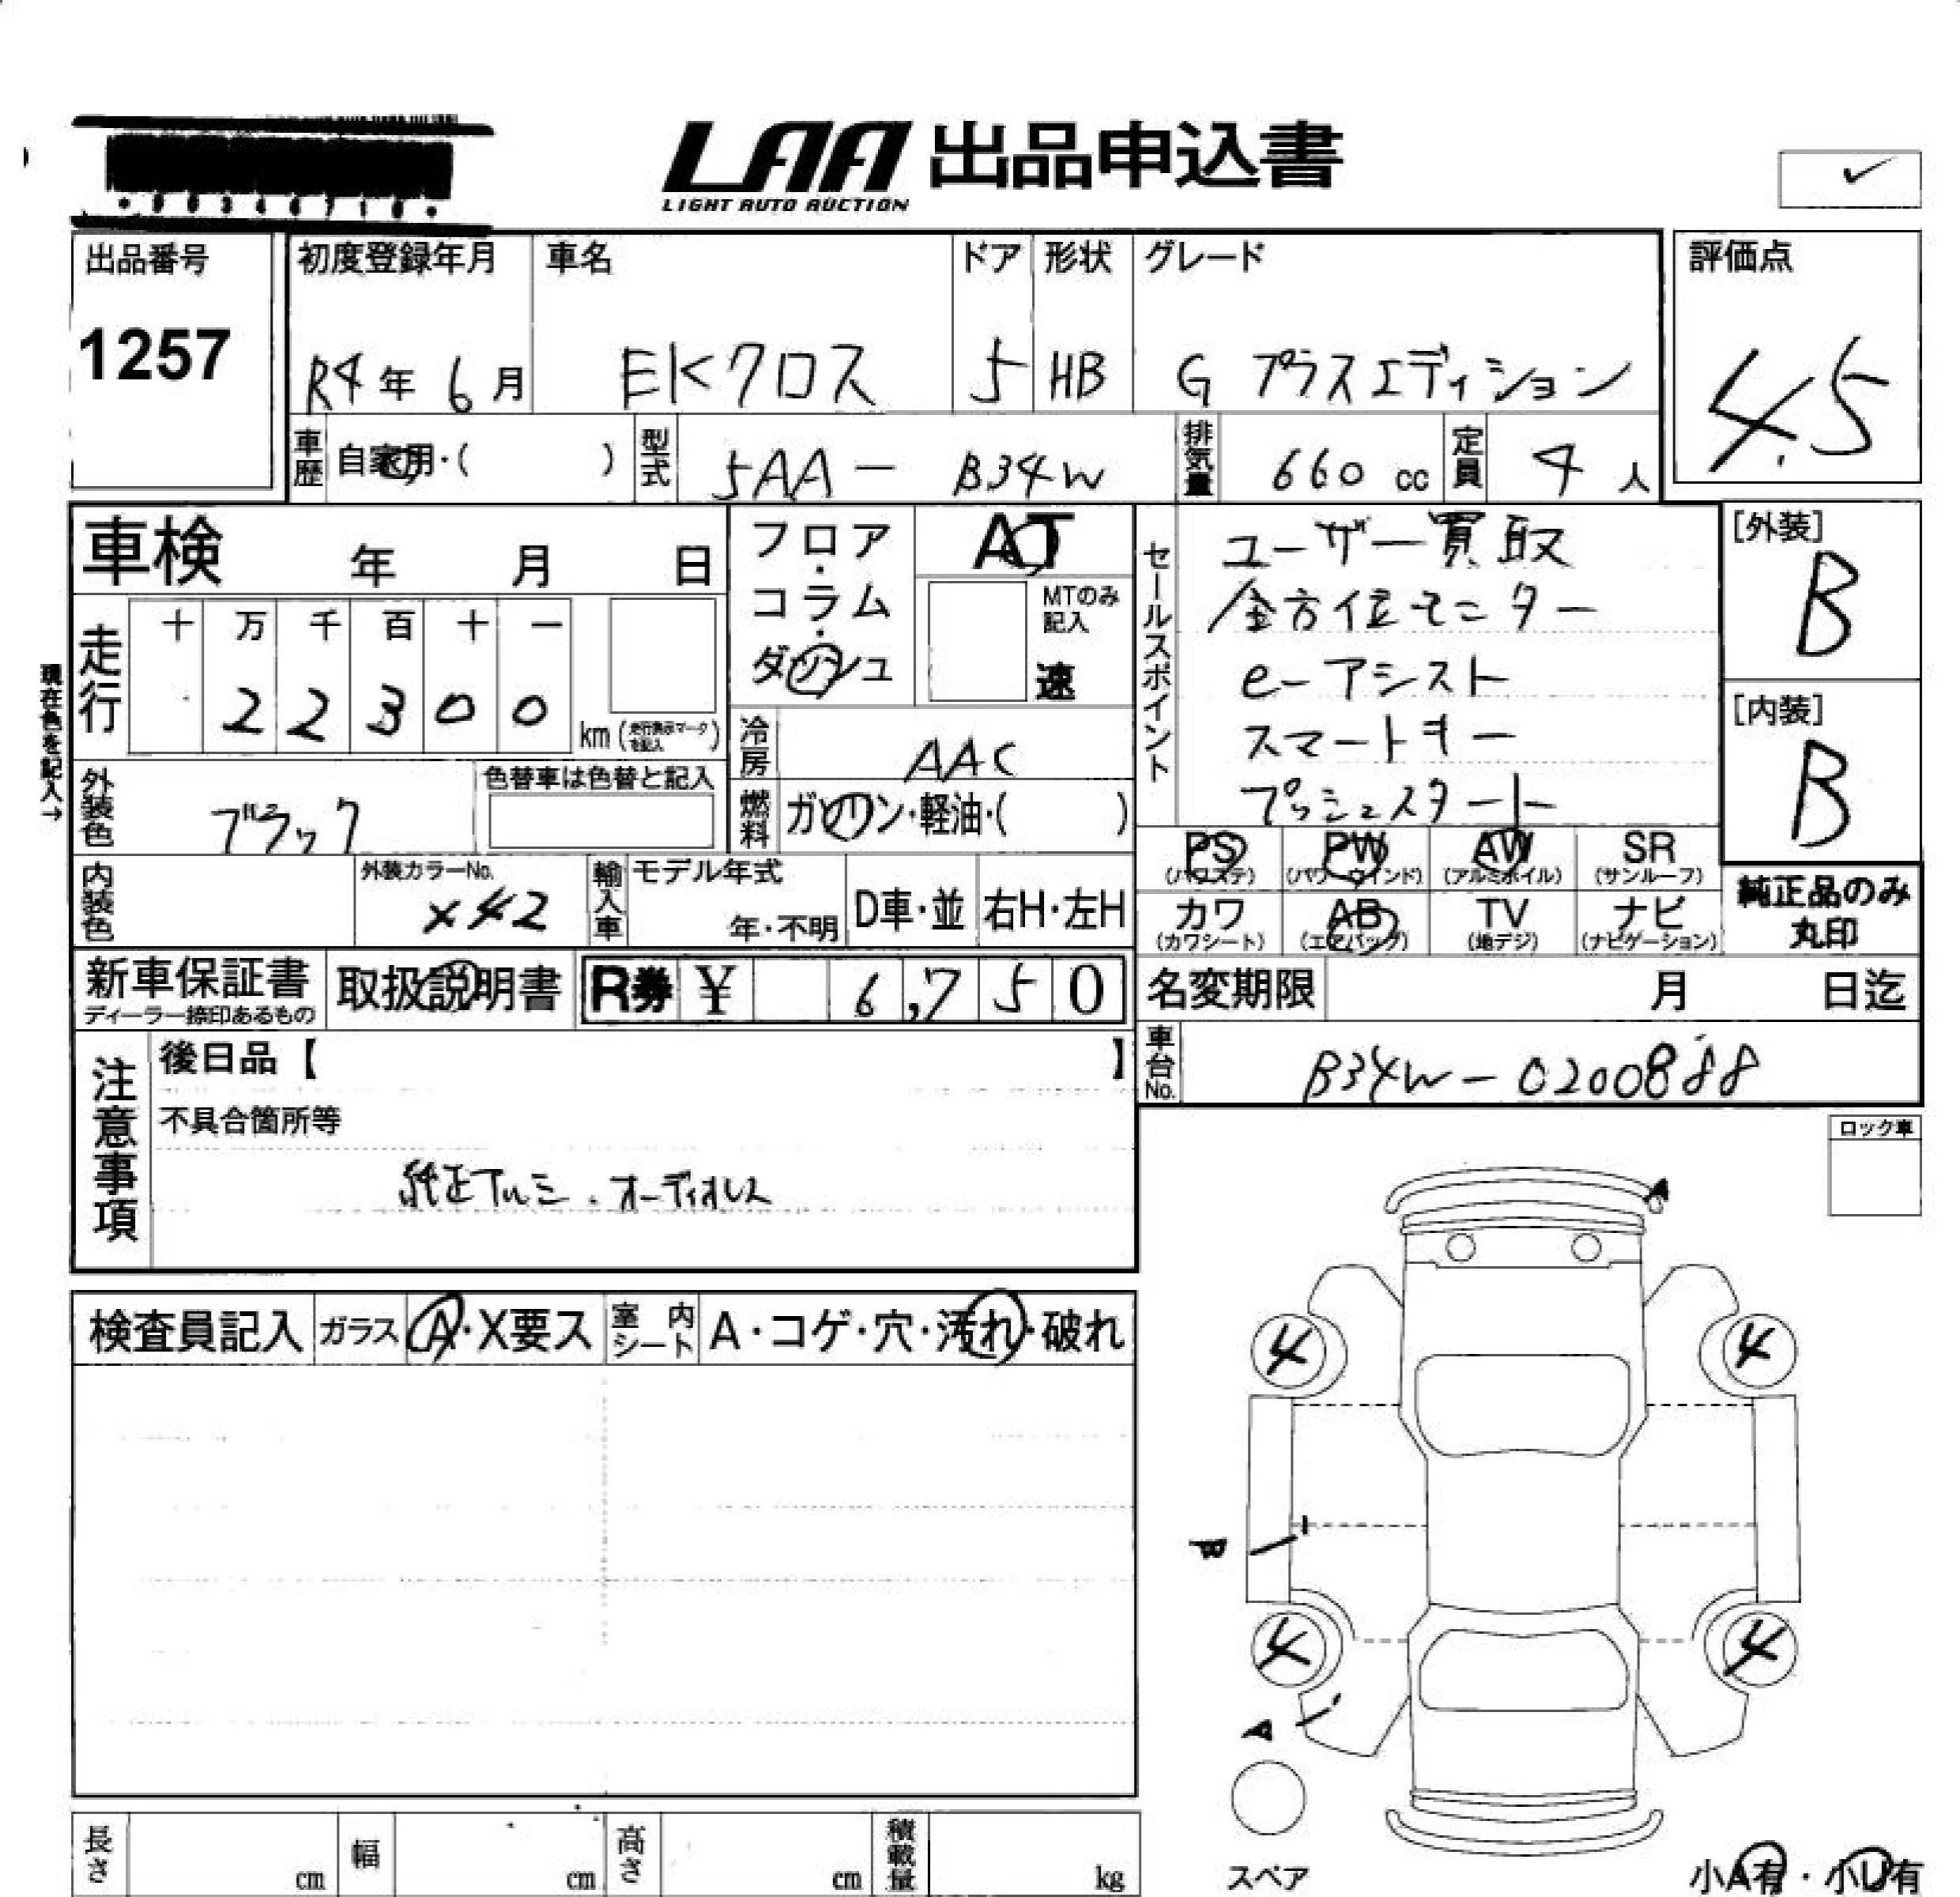 LAA 出品申込書
LIGHT AUTO AUCTION
出品番号
1257
初度登録年月
R4年 6月
車名
EKクロス
ドア
5
形状
HB
グレード
G プラスエディション
評価点
4.5
車歴
自家用・( )
型式
5AA - B34W
排気量
660 cc
定員
4 人
車検 年 月 日
フロア・コラム・ダッシュ
AT
MTのみ記入
速
セールスポイント
ユーザー買取
全方位モニター
e-アシスト
スマートキー
プッシュスタート
[外装]
B
[内装]
B
現在色を記入→
走行
十 万 千 百 十 一
2 2 3 0 0
km (走行表示マークを記入)
冷房
AAC
外装色
ブラック
色替車は色替と記入
燃料
ガソリン・軽油・( )
PS
(パワステ)
PW
(パワーウインド)
AW
(アルミホイル)
SR
(サンルーフ)
カワ
(カワシート)
AB
(エアバッグ)
TV
(地デジ)
ナビ
(ナビゲーション)
純正品のみ
丸印
内装色
外装カラーNo.
X42
輸入車
モデル年式
年・不明
D車・並
右H・左H
新車保証書
ディーラー捺印あるもの
取扱説明書
R券 ¥ 6,750
名変期限 月 日迄
車台No.
B34W-0200888
注意事項
後日品【 】
不具合箇所等
純正アルミ.オーディオレス
ロック車
A
検査員記入
ガラス
A・X要ス
室内シート
A・コゲ・穴・汚れ・破れ
4 4
B
4 4
A
スペア
長さ cm
幅 cm
高さ cm
積載量 kg
小A有・小U有